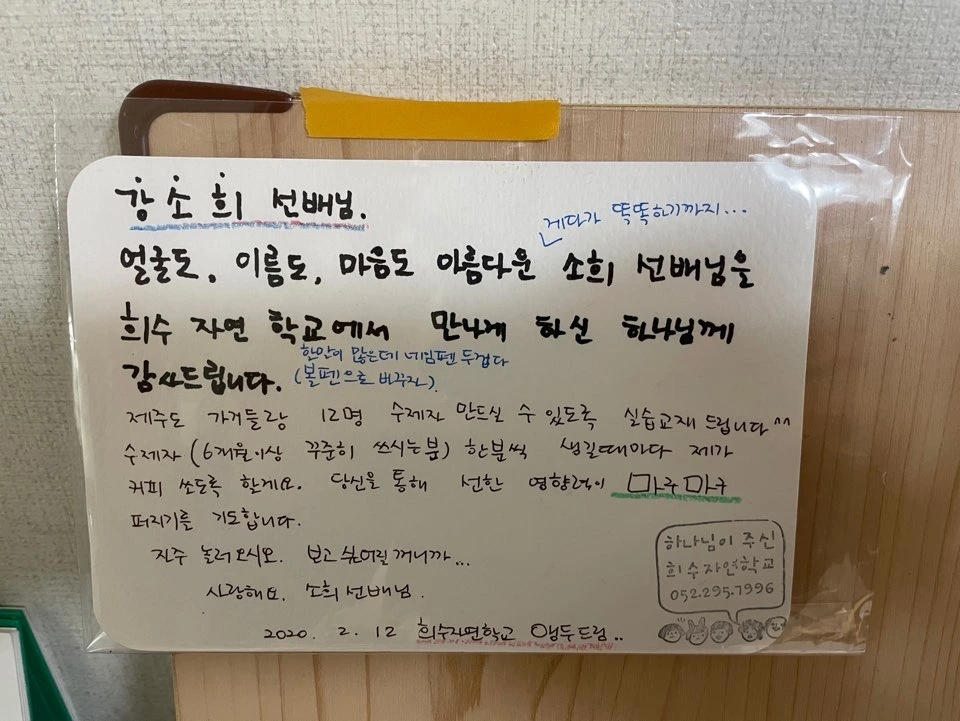 강소희 선배님.
게다가 똑똑하기까지...
얼굴도, 이름도, 마음도 아름다운 소희 선배님을
희수 자연 학교에서 만나게 하신 하나님께
감사드립니다.
한안이 많은데 네임펜 두껍다
(볼펜으로 바꾸자).
제주도 가거들랑 12명 수제자 만드실 수 있도록 실습교재 드립니다^^
수제자 (6개월이상 꾸준히 쓰시는분) 한분씩 생길때마다 제가
커피 쏘도록 할게요. 당신을 통해 선한 영향력이 마구마구
퍼지기를 기도합니다.
자주 놀러오시오. 보고싶어질꺼니까...
사랑해요. 소희선배님.
2020. 2. 12 희수자연학교 앵두드림..
하나님이 주신
희수자연학교
052.295.7996